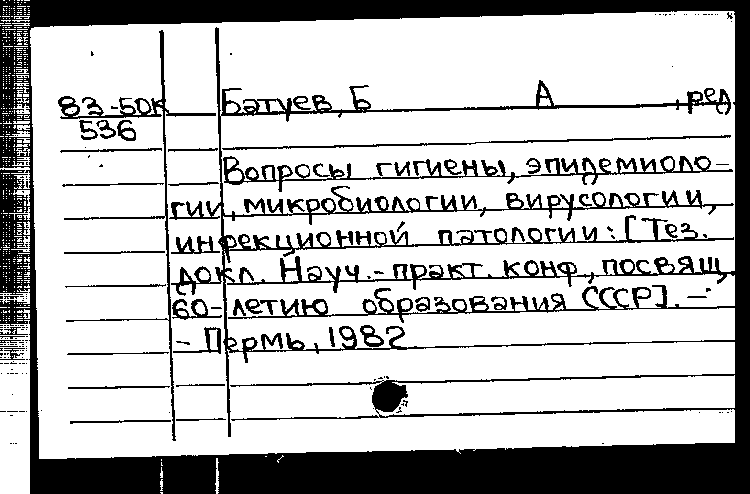 83-50к Батуев, Б А , ред.
536
Вопросы гигиены, эпидемиоло-
гии, микробиологии, вирусологии,
инфекционной патологии: [Тез.
докл. Науч.-практ. конф., посвящ.
60-летию образования СССР]. -
- Пермь, 1982